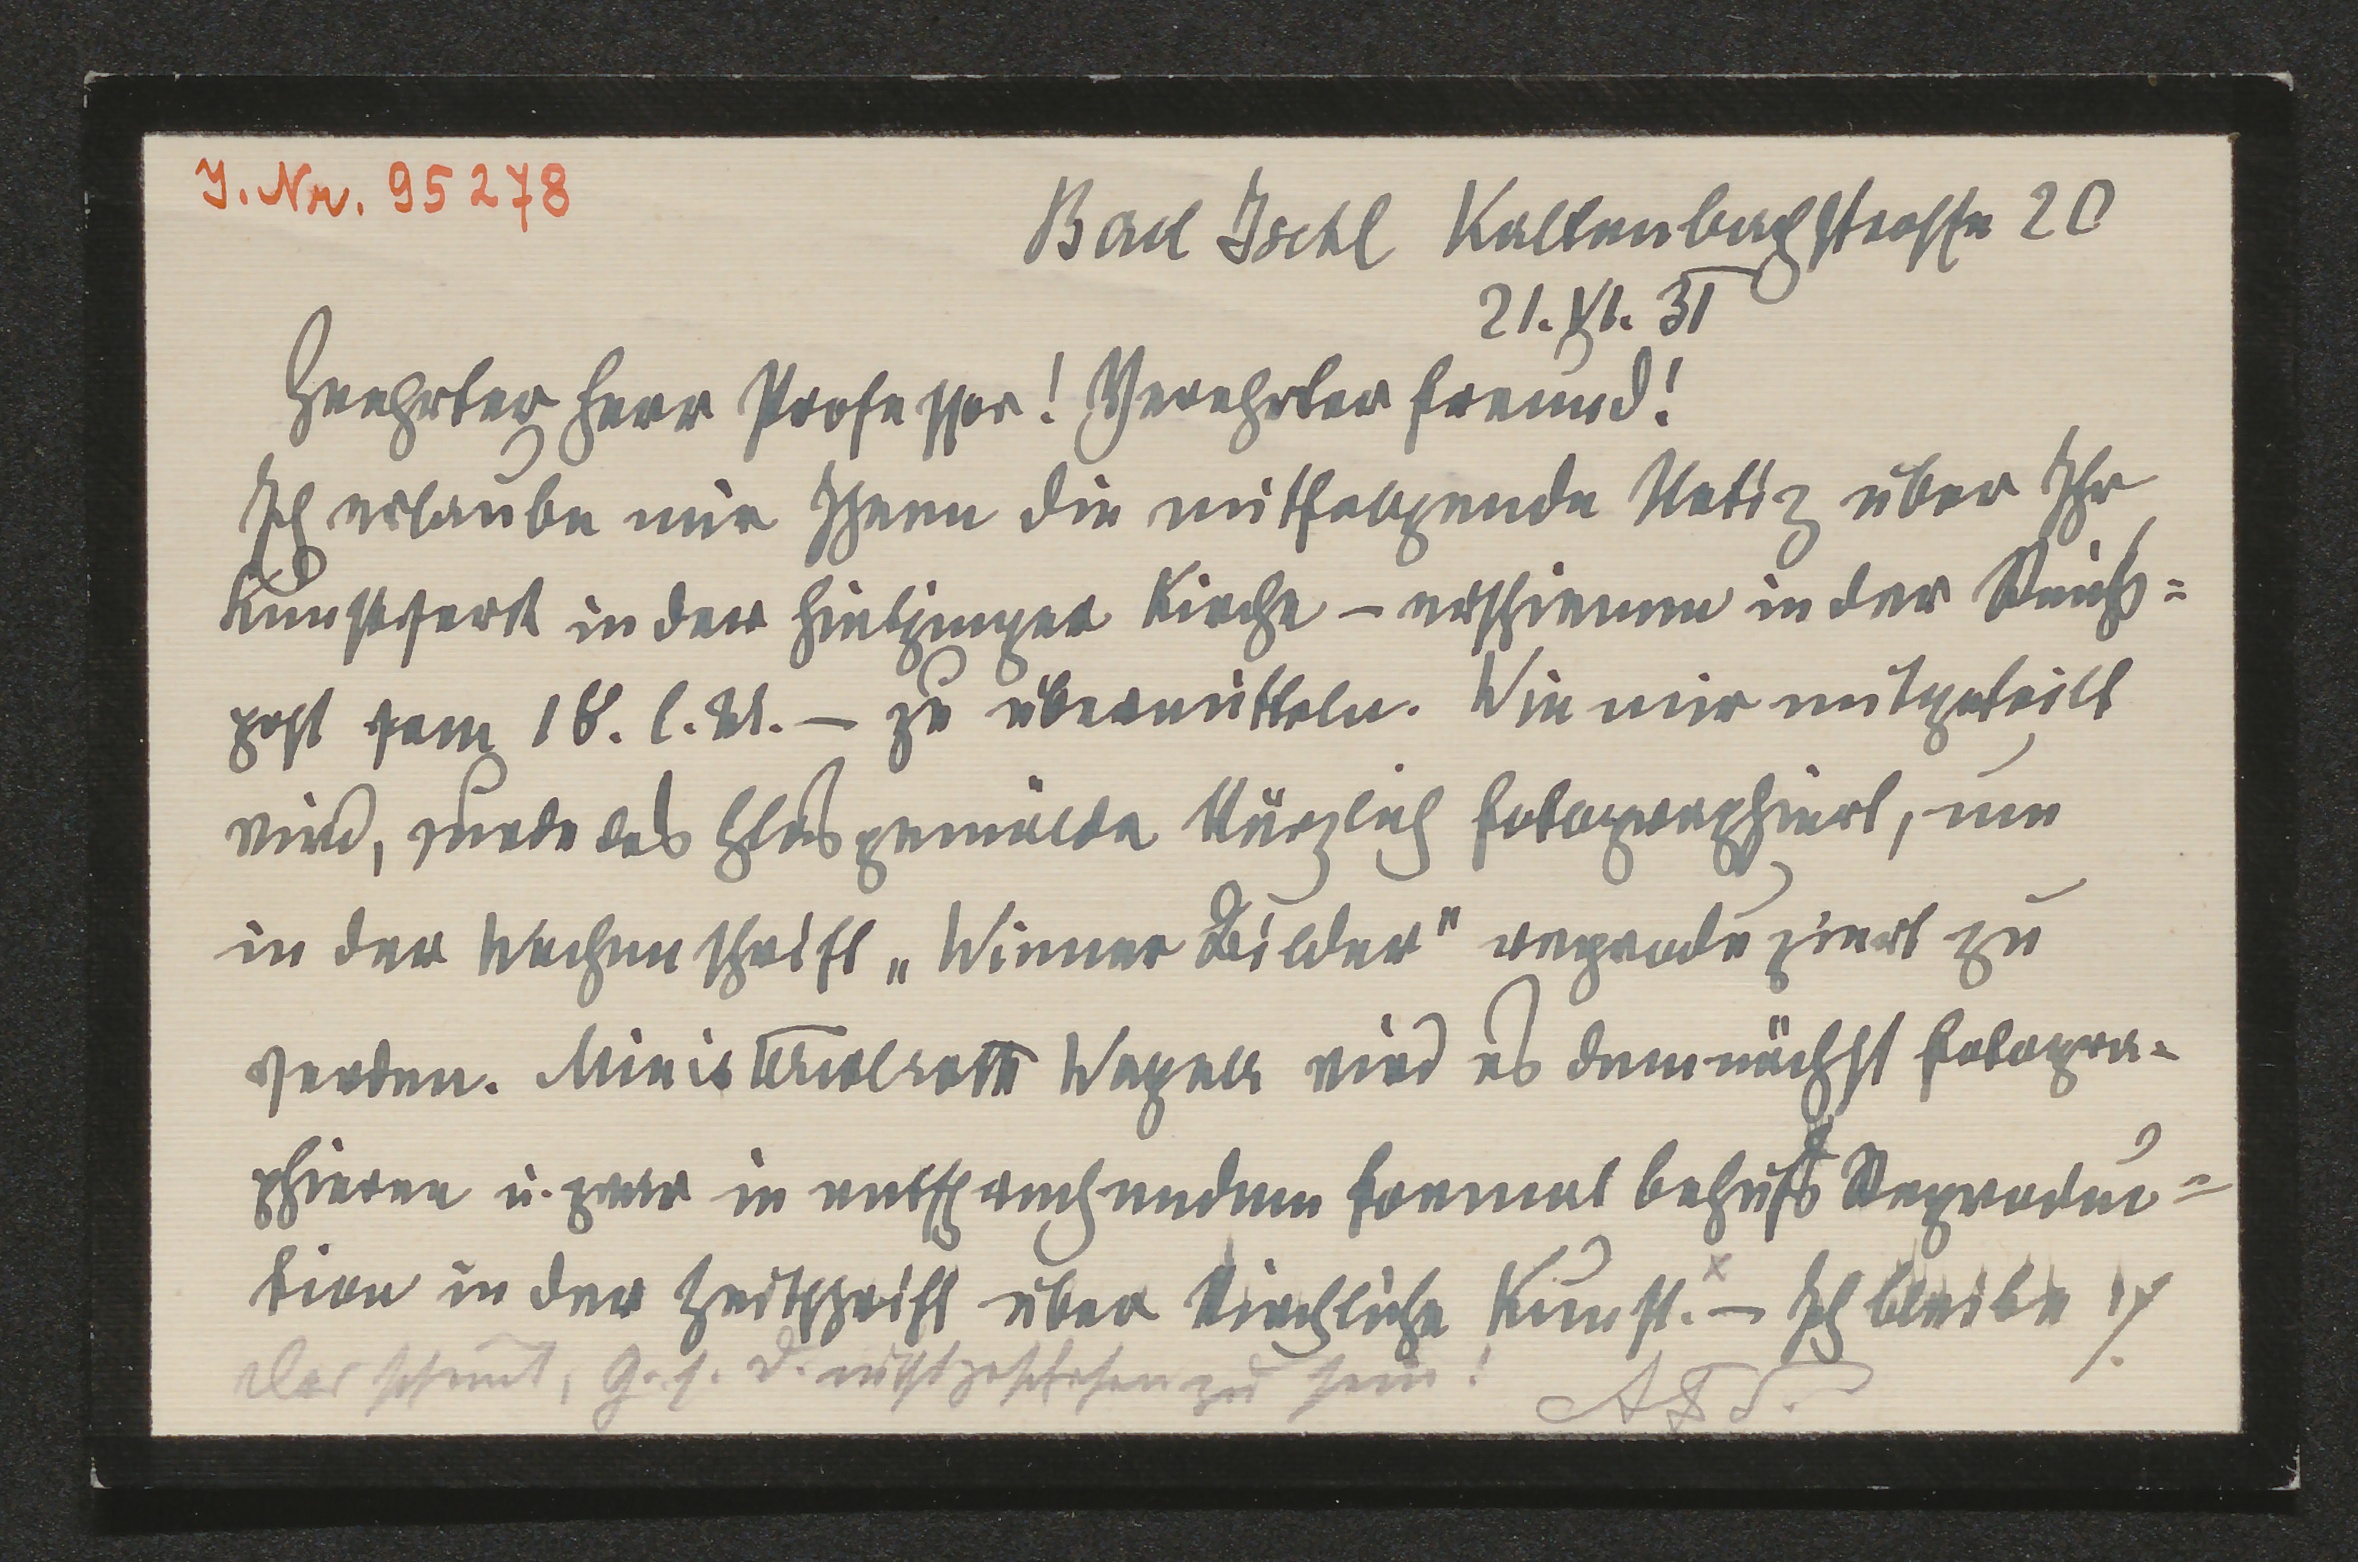 J. Nr. 95278
Bad Ischl Kaltenbachstrasse 20
21. VI. 31
Geehrter Herr Professor! Verehrter Freund!
Ich erlaube mir Ihnen die mitfolgende Notiz über Ihr
Kunstwerk in der Hietzinger Kirche – erschienen in der Reichs=
post vom 18. l. M. – zu übermitteln. Wie mir mitgeteilt
wird, wurde das Glasgemälde kürzlich fotographiert, um
in der Wochenschrift „Wiener Bilder" reproduziert zu
werden. Ministerialrath wird es demnächst fotogra=
phieren u. zwar in entsprechendem Format behufs Reproduc=
tion in der Zeitschrift über kirchliche Kunst. x – Ich bleibe ./.
Das scheint, G. s. D. nicht geschehen zu sein!